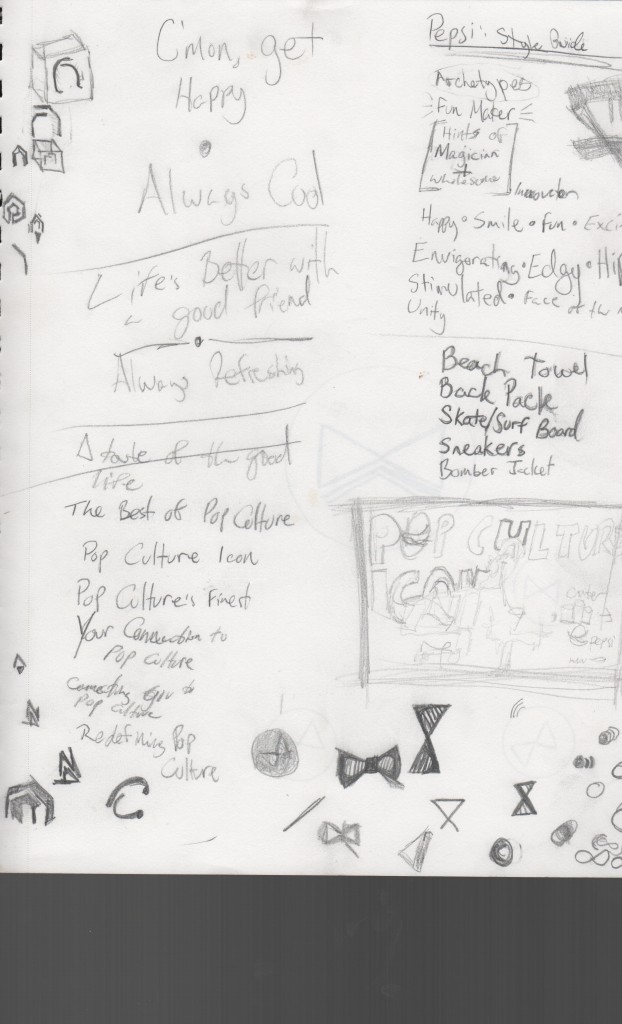 C'mon, get
Happy
Always Cool
Life's Better with
a good friend
Always Refreshing
A taste of the good
life
The Best of Pop Culture
Pop Culture Icon
Pop Culture's Finest
Your Connection to
Pop Culture
Connecting you to
Pop Culture
Redefining Pop
Culture
Pepsi: Style Guide
Archetypes
Fun Maker
Hints of
Magician
+
wholesome
Innovation
Happy • Smile • Fun • Exci
Envigorating • Edgy • Hi
Stimulated • Face of the
Unity
Beach Towel
Back Pack
Skate/Surf Board
Sneakers
Bomber Jacket
POP CULTURE
ICON
pepsi